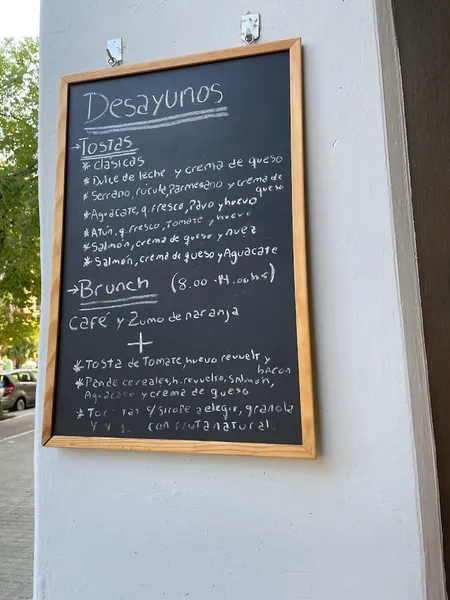 Desayunos
→Tostas
* Clásicas
* Dulce de leche y crema de queso
* Serrano, rúcula, parmesano y crema de queso
* Aguacate, q. fresco, Pavo y huevo
* Atún, q. fresco, Tomate y huevo
* Salmón, crema de queso y nuez
* Salmón, crema de queso y Aguacate
→Brunch (8.00 - H.00hs)
Café y Zumo de naranja
+
* Tosta de Tomate, huevo revuelt y bacon
* Pan de cereales, h. revuelto, salmón,
Aguacate y crema de queso
* c/ sirope a elegir, granola
y con fruta natural.